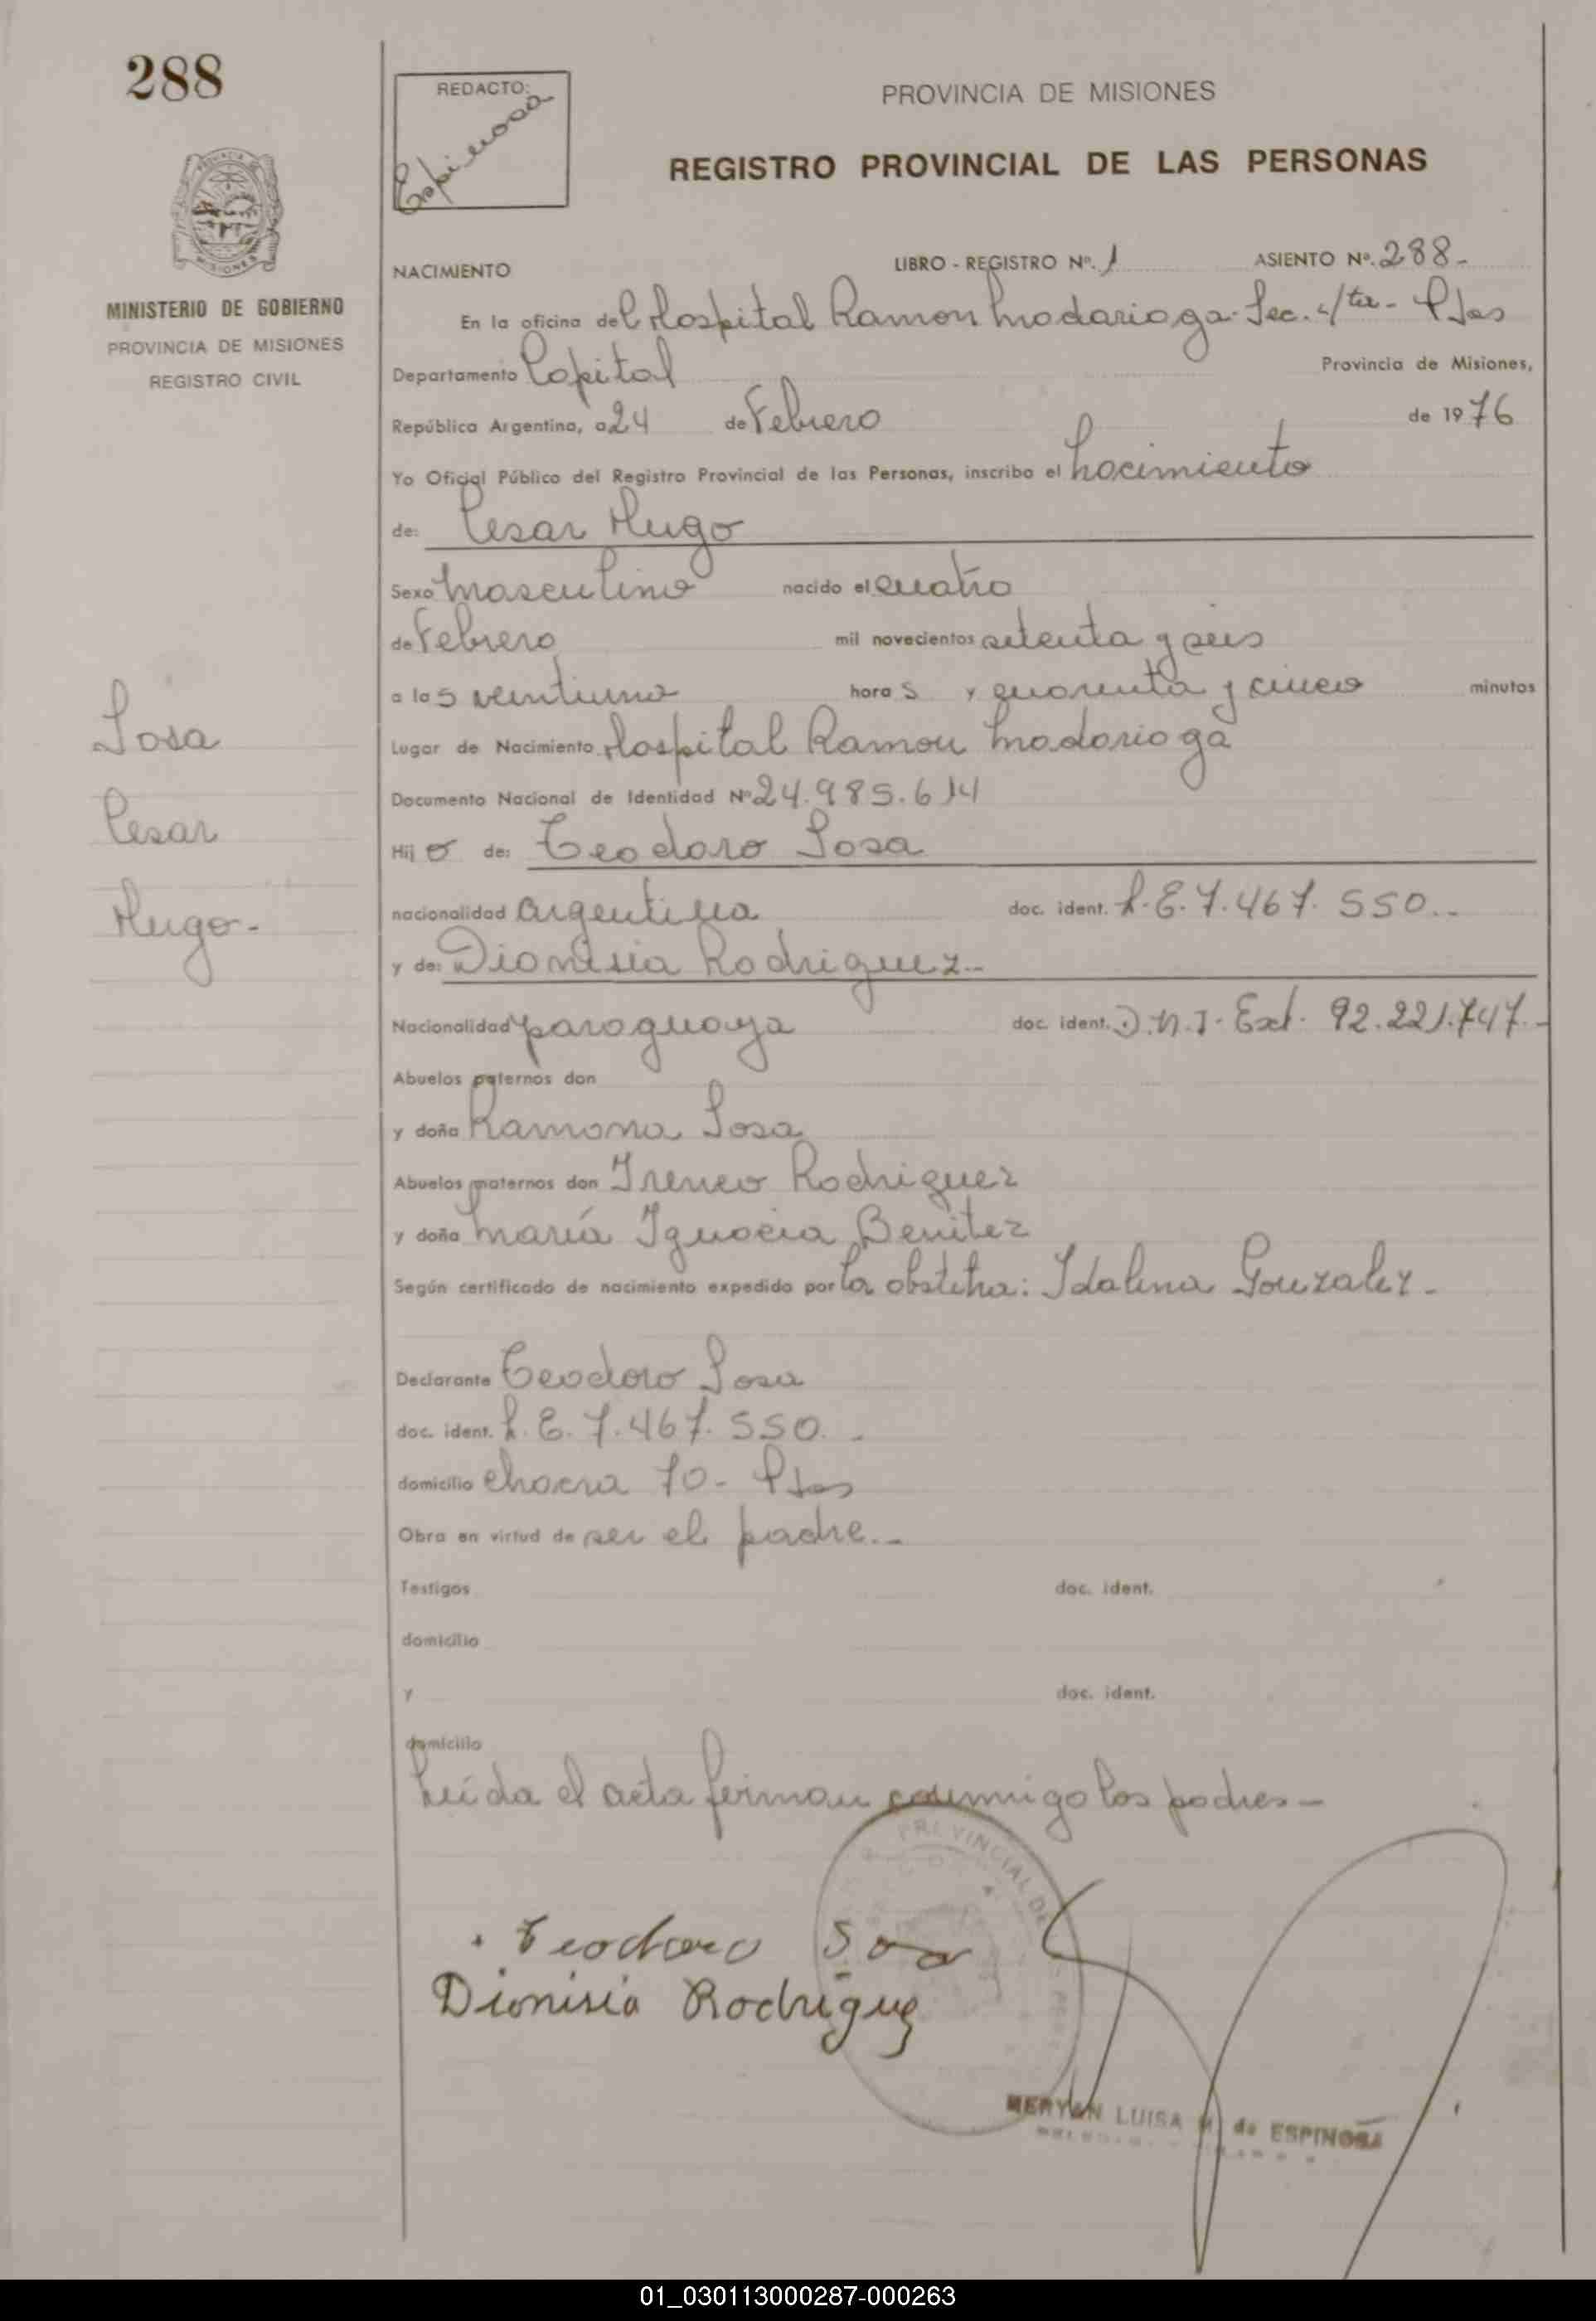 288
REDACTO:
Espinosa
PROVINCIA DE MISIONES
REGISTRO PROVINCIAL DE LAS PERSONAS
MISIONES
MINISTERIO DE GOBIERNO
PROVINCIA DE MISIONES
REGISTRO CIVIL
NACIMIENTO LIBRO - REGISTRO Nº. 1 ASIENTO Nº. 288-
En la oficina del Hospital Ramon Madariaga- Sec. Pdas
Departamento Capital Provincia de Misiones,
República Argentina, a 24 de Febrero de 1976
Yo Oficial Público del Registro Provincial de las Personas, inscribo el nacimiento
de: Cesar Hugo
Sexo masculino nacido el cuatro
de Febrero mil novecientos setenta y seis
a las veintiuno horas y quarenta y cinco minutos
Lugar de Nacimiento Hospital Ramon Madariaga
Documento Nacional de Identidad Nº 24.985.614
Hijo de: Teodoro Sosa
nacionalidad argentina doc. ident. L.E. 7.467.550.-
y de: Dionisia Rodriguez.-
Nacionalidad paraguaya doc. ident. D.N.I. Ext. 92.221.747.-
Abuelos paternos don
y doña Ramona Sosa
Abuelos maternos don Ireneo Rodriguez
y doña María Ignacia Benitez
Según certificado de nacimiento expedido por la obstetra: Idalina Gonzalez.-
Declarante Teodoro Sosa
doc. ident. L.E. 7.467.550.-
domicilio chacra 70- Pdas
Obra en virtud de ser el padre.-
Testigos doc. ident.
domicilio
y doc. ident.
domicilio
Leída el acta firman conmigo los padres-
Sosa
Cesar
Hugo-
Teodoro Sosa
Dionisia Rodriguez
PROVINCIAL DE
MERYAN LUISA M. de ESPINOSA
01_030113000287-000263